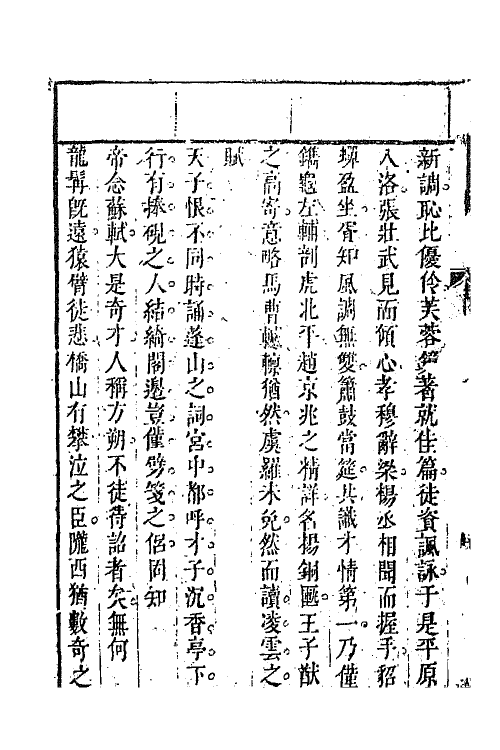 新調恥比優伶芙蓉鏡著就佳篇徒資諷詠于是平原
入洛張壯武見而傾心孝穆辭梁楊丞相聞而握手貂
蟬盈坐胥知風調無雙簫鼓當筵共識才情第一乃僅
鐫龜左輔剖虎北平趙京兆之精詳名揚銅匭王子猷
之高寄意略馬曹轗軻猶然虞羅未免然而讀凌雲之
賦
天子恨不同時誦蓬山之詞宮中都呼才子沉香亭下
行有捧硯之人結綺閣邊豈僅劈箋之侶固知
帝念蘇軾大是奇才人稱方朔不徒待詔者矣無何
龍髯既遠猿臂徒悲橋山有攀泣之臣隴西猶數奇之